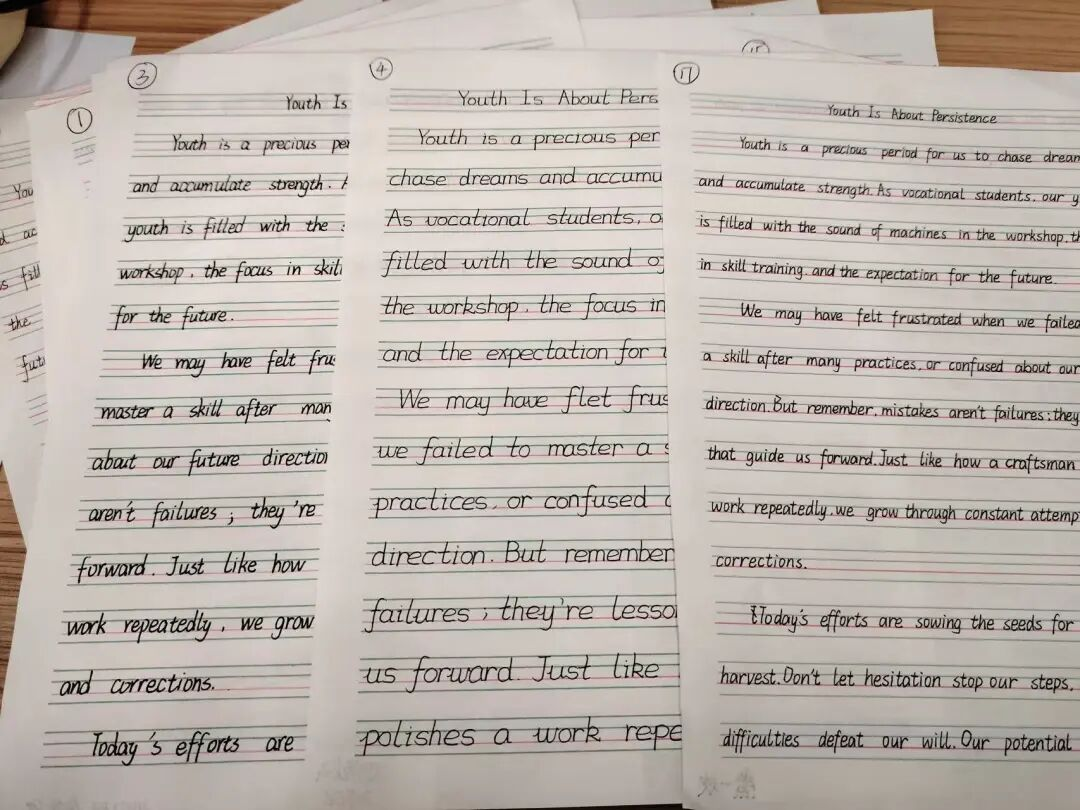 You
the
①
③
Youth Is
Youth is a precious per
and accumulate strength.
youth is filled with the
workshop, the focus in skill
for the future.
We may have felt frus
master a skill after man
about our future direction
aren't failures; they're
forward. Just like how
work repeatedly, we grow
and corrections.
Today's efforts are
④
Youth Is About Pers
Youth is a precious per
chase dreams and accumu
As vocational students, o
filled with the sound of
the workshop, the focus in
and the expectation for
We may have flet frus
we failed to master a s
practices, or confused
direction. But remember
failures; they're lesso
us forward. Just like
polishes a work repe
17
Youth Is About Persistence
Youth is a precious period for us to chase dream
and accumulate strength. As vocational students, our y
is filled with the sound of machines in the workshop, th
in skill training. and the expectation for the future.
We may have felt frustrated when we failed
a skill after many practices, or confused about our
direction. But remember, mistakes aren't failures; they
that guide us forward. Just like how a craftsman
work repeatedly, we grow through constant attemp
corrections.
Today's efforts are sowing the seeds for
harvest. Don't let hesitation stop our steps,
difficulties defeat our will. Our potential